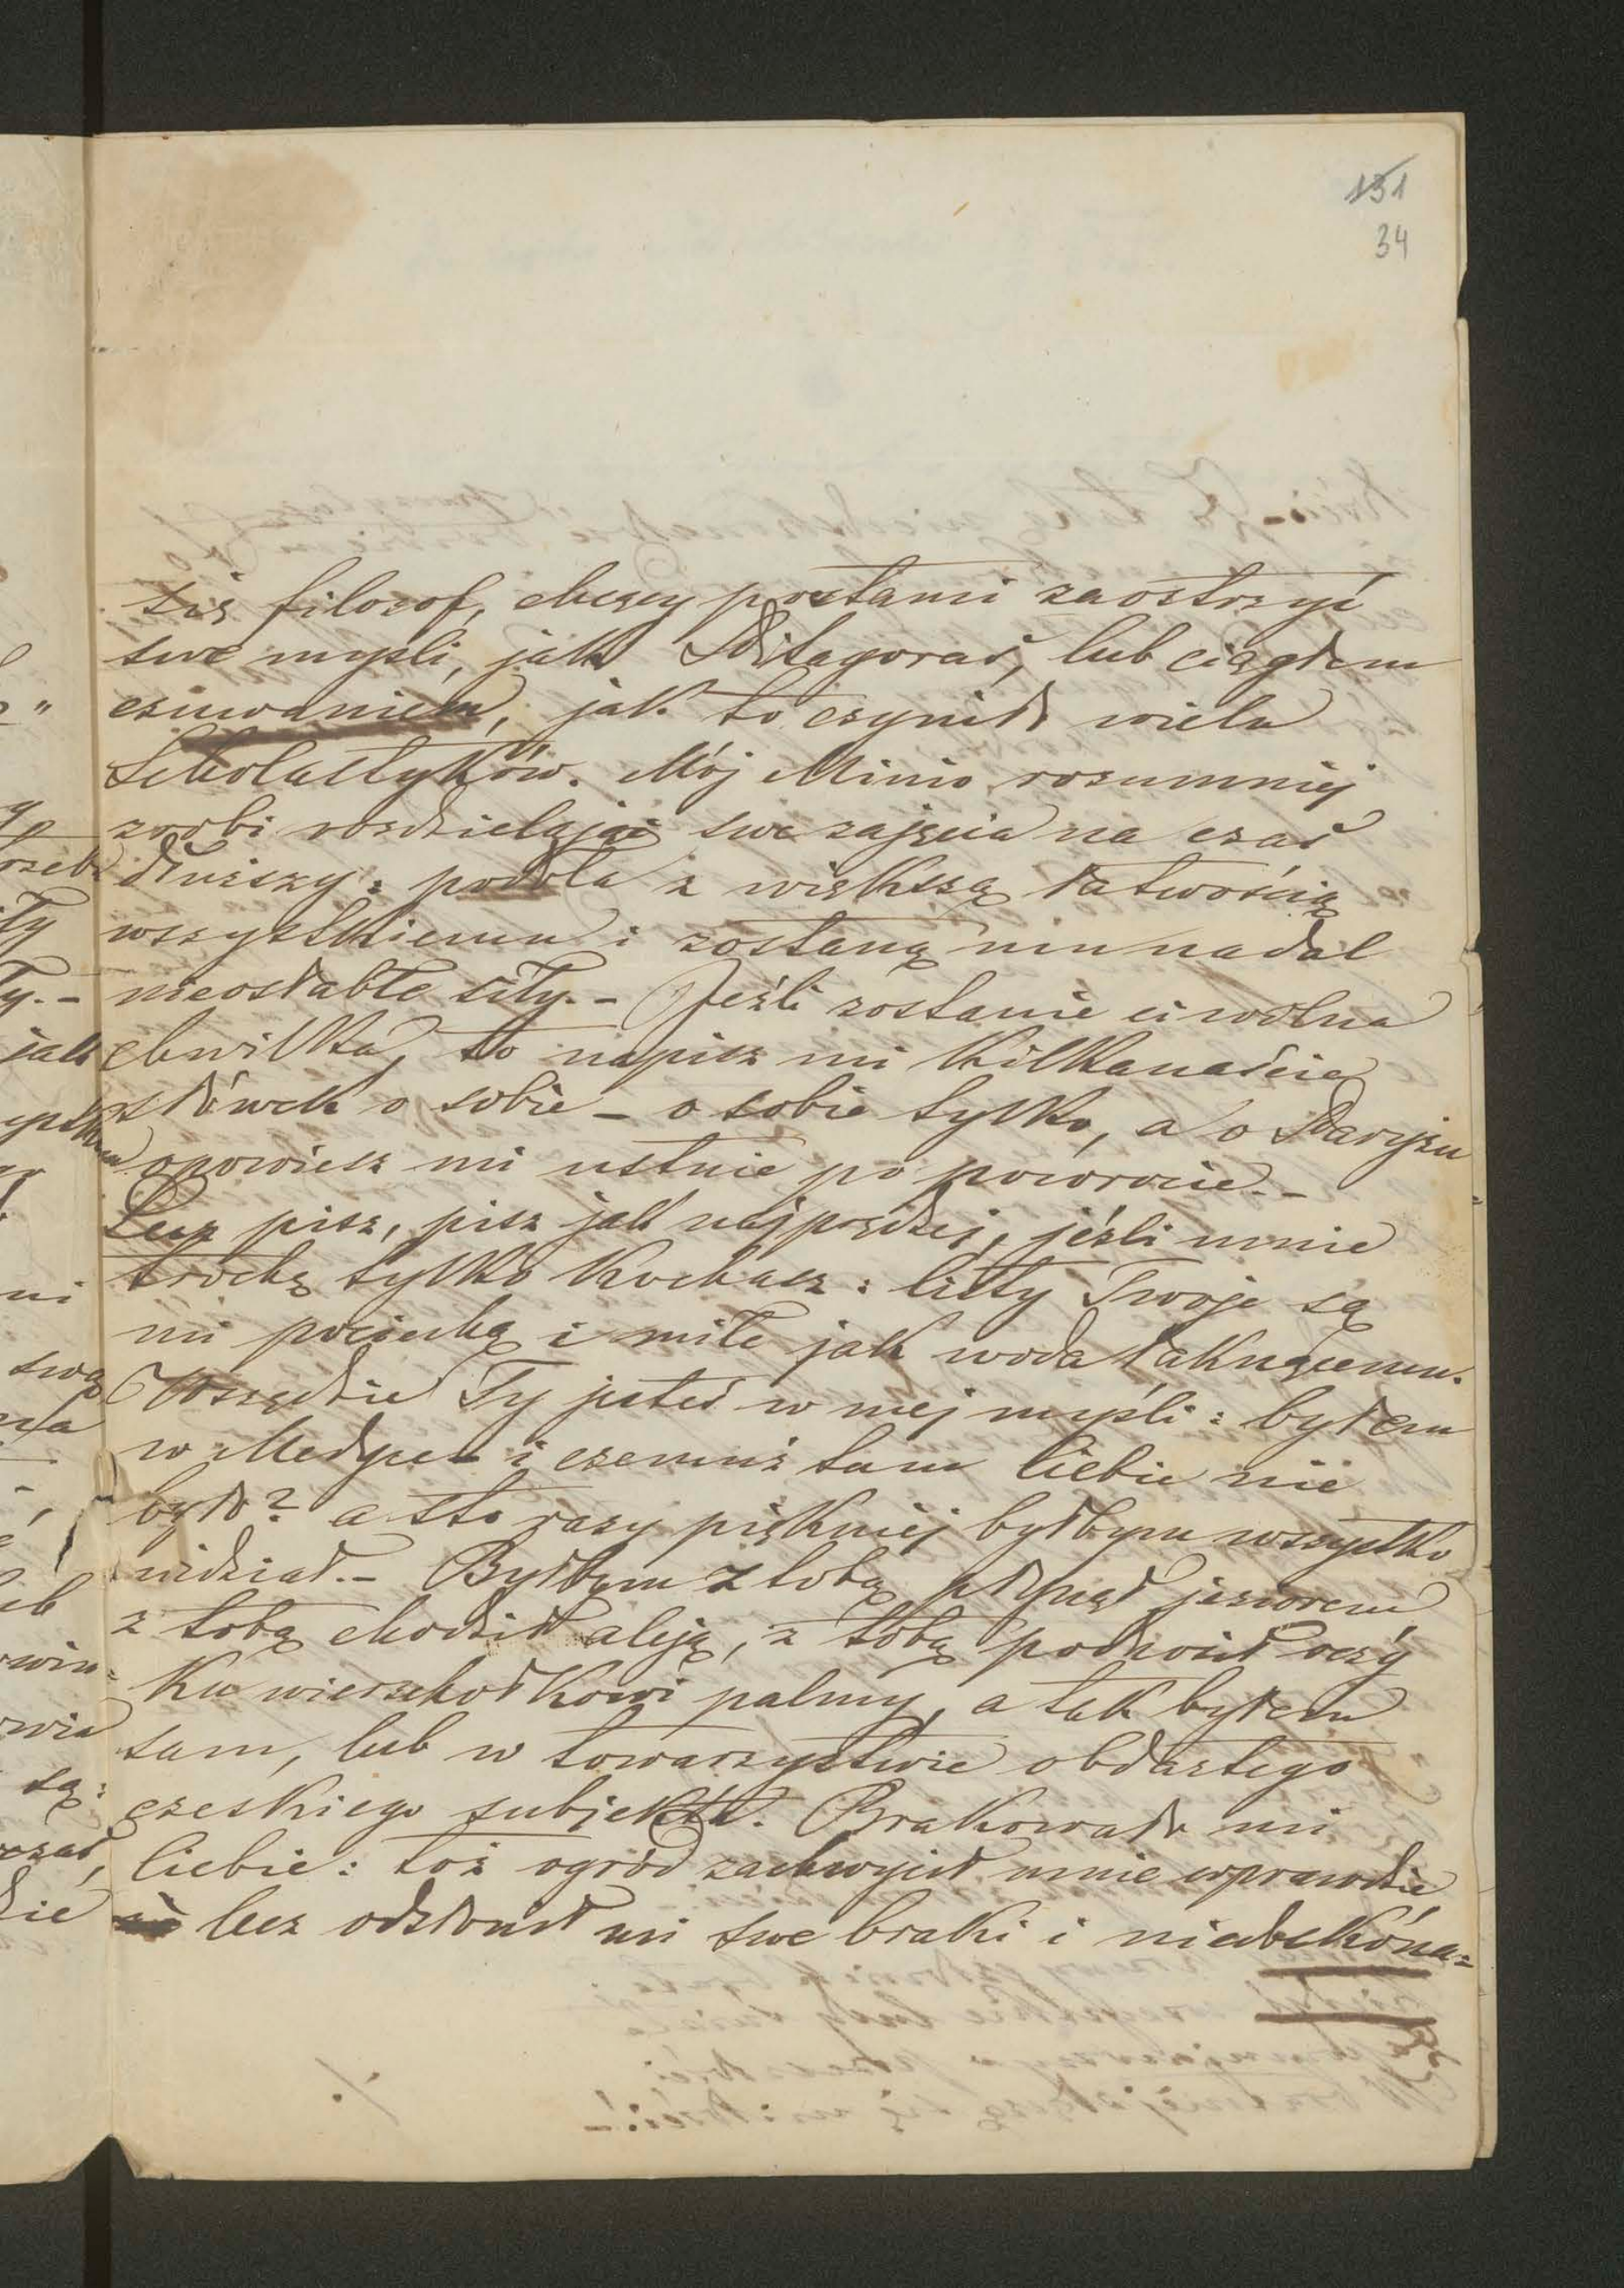 131
34
siś filozof, chcący postami zaostrzyć
swe myśli, jak Pitagoras, lub ciągłem
czuwaniem, jak to czynił wielu
Scholastyków. Mój Minio rozumniej
zrobi rozdzielając swe zajęcia na czas
dłuższy: podoła z większą łatwością
wszystkiemu i zostaną mu nadal
nieosłable siły. - Jeźli zostanie ci wolna
chwilka, to napisz mi kilkanaście
słówek o sobie - o sobie tylko, a o Paryżu
opowiesz mi ustnie po powrocie. -
Lecz pisz, pisz jak najprędzej, jeźli mnie
trochę tylko kochasz: listy Twoje są
mi pociechą i miłe jak woda łaknącemu.
Wszędzie Ty jesteś w mej myśli: byłem
w i czemuż tam Ciebie nie
było? a sto razy piękniej byłbym wszystko
widział. - Byłbym z tobą płynął jeziorem
z tobą chodził aleją, z tobą podnosił oczy
ku wierzchołkowi palmy, a tak byłem
sam, lub w towarzystwie obdartego
czeskiego subjekta. Brakowało mi
Ciebie: toż ogród zachwycił mnie wprawdzie
lecz odsłonił mi swe braki i niedoskóna=
./.